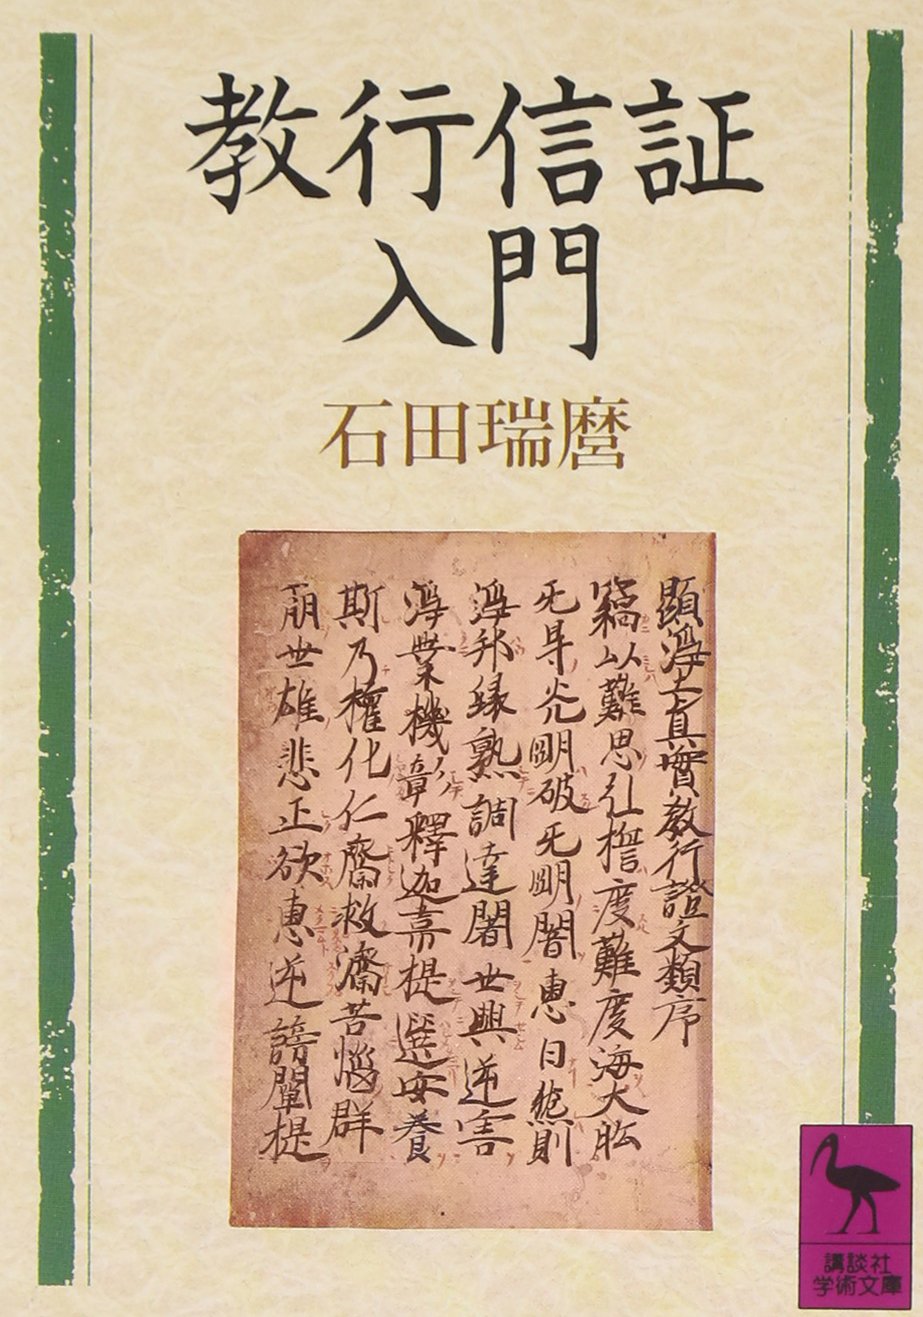 教行信証
入門
石田瑞麿
顯浄土真實教行證文類序
竊以難思弘誓度難度海大舩
无㝵光明破无明闇惠日然則
浄邦縁熟調達闍世興逆害
浄業機章釋迦韋提選安養
斯乃權化仁齊救濟苦惱群
萠世雄悲正欲惠逆謗闡提
講談社
学術文庫